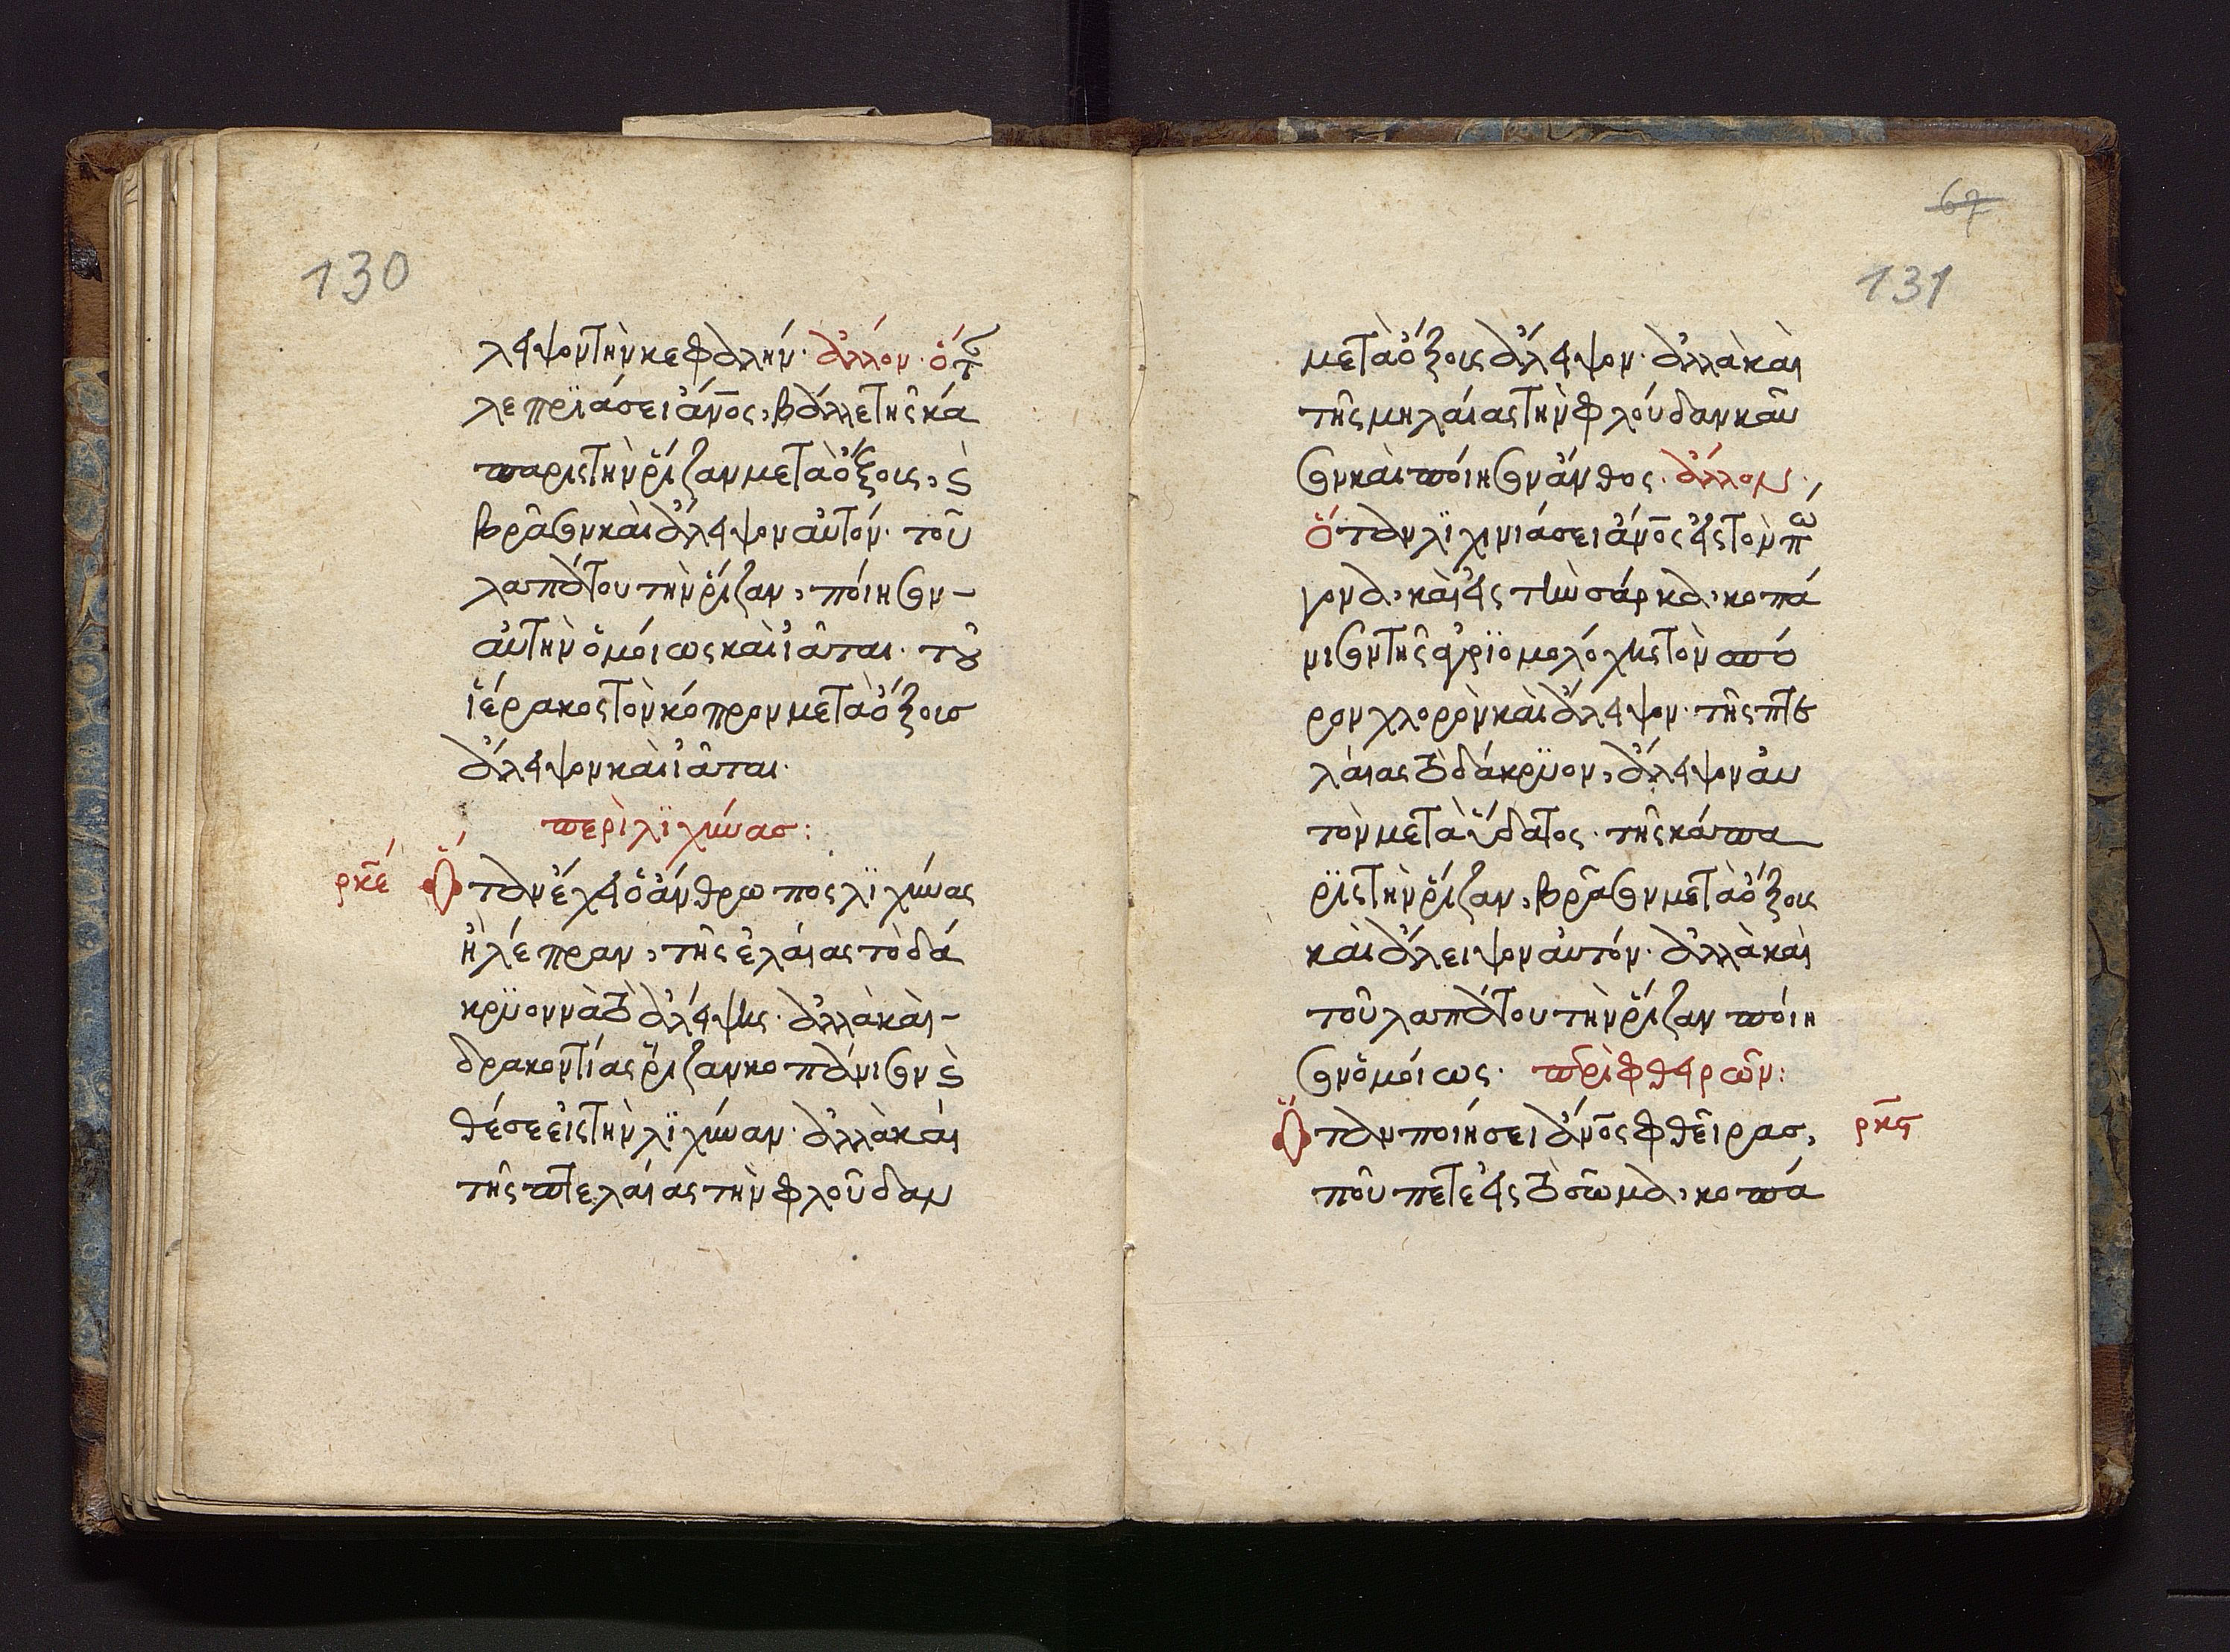 130
λειψον τὴν κεφαλήν· ἄλλον· ὅτ
λεπριάσει ἄνος, βάλλε τῆς κά
παρις τὴν ρίζαν μετὰ ὄξους, κ
βράσον καὶ ἄλειψον αὐτόν· τοῦ
λαπάτου τὴν ρίζαν, ποίησον -
αὐτὴν ὁμοίως καὶ ἰᾶται· τοῦ
ἱέρακος τὸν κόπρον μετὰ ὄξους
ἄλειψον καὶ ἰᾶται·
περὶ λϊχήνας:
ρκε΄ Ὅταν ἔχει ὁ ἄνθρωπος λϊχήνας
ἢ λέπραν, τῆς ἐλαίας τὸ δά
κρϋον νὰ τὸ ἀλείψῃς· ἀλλὰ καὶ -
δρακοντίας ρίζαν κοπάνισον κ
θέσε εἰς τὴν λϊχήναν· ἀλλὰ καὶ
τῆς πτελαίας τὴν φλούδαν
67
131
μετὰ ὄξους ἄλειψον· ἀλλὰ καὶ
τῆς μηλαίας τὴν φλούδαν καῦ
σον καὶ ποίησον ἄνθος· ἄλλον·
ὅταν λϊχινιάσει ἄνος εἰς τὸν πώ
γονα, καὶ εἰς τὴν σάρκα, κοπά
νισον τῆς ἀγρϊομολόχης τὸν σπό
ρον χλορὸν καὶ ἄλειψον· τῆς πτε
λαίας τὸ δάκρϋον, ἄλειψον αὐ
τὸν μετὰ ὕδατος· τῆς κάπα
ρϊς τὴν ρίζαν, βράσον μετὰ ὄξους
καὶ ἄλειψον αὐτόν· ἀλλὰ καὶ
τοῦ λαπάτου τὴν ρίζαν ποίη
σον ὁμοίως· πρὶ φθειρῶν:
Ὅταν ποιήσει ἄνος φθεῖρας, ρκς
ποῦ πετε εἰς τὸ σῶμα, κοπά